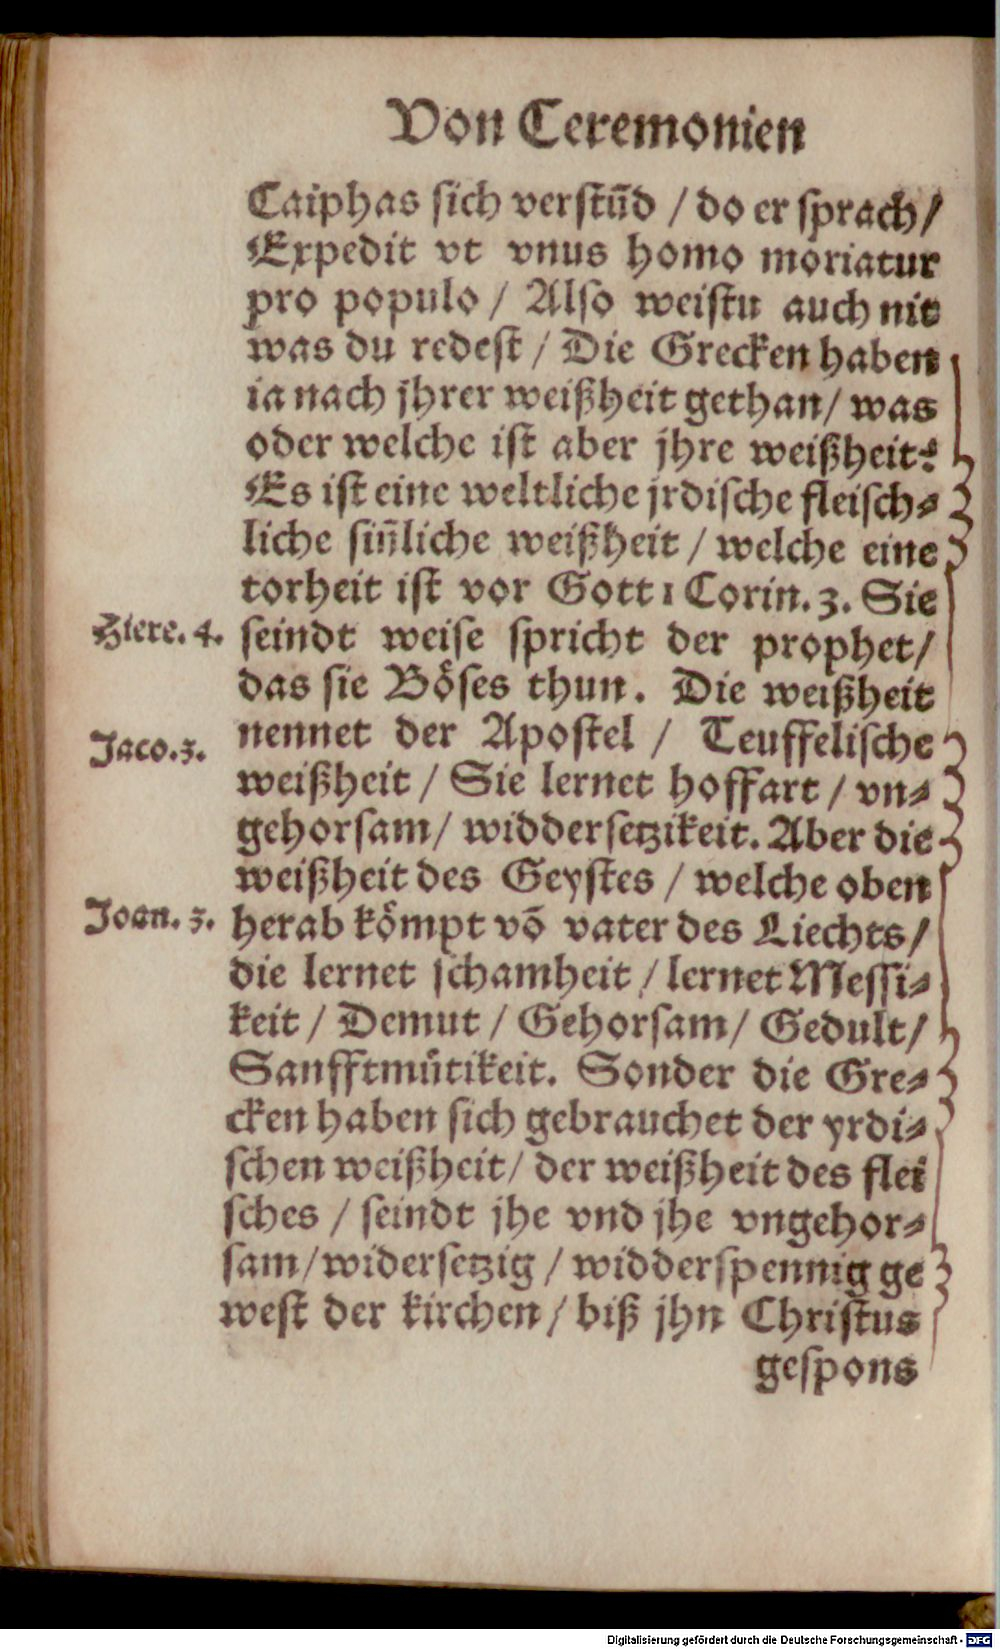 Von Ceremonien
Caiphas sich verstūd / do er sprach /
Expedit vt vnus homo moriatur
pro populo / Also weistu auch nit
was du redest / Die Grecken haben
ia nach jhrer weißheit gethan / was
oder welche ist aber jhre weißheit?
Es ist eine weltliche jrdische fleisch⸗
liche siñliche weißheit / welche eine
torheit ist vor Gott 1 Corin. 3. Sie
Hiere. 4. seindt weise spricht der prophet /
das sie Böses thun. Die weißheit
Jaco. 3. nennet der Apostel / Teuffelische
weißheit / Sie lernet hoffart / vn⸗
gehorsam / widdersetzikeit. Aber die
weißheit des Geystes / welche oben
Joan. 3. herab kömpt vō vater des Liechts /
die lernet schamheit / lernet Messi⸗
keit / Demut / Gehorsam / Gedult /
Sanfftmütikeit. Sonder die Gre⸗
cken haben sich gebrauchet der yrdi⸗
schen weißheit / der weißheit des flei
sches / seindt jhe vnd jhe vngehor⸗
sam / widersetzig / widderspennig ge
west der kirchen / biß jhn Christus
gespons
Digitalisierung gefördert durch die Deutsche Forschungsgemeinschaft - DFG